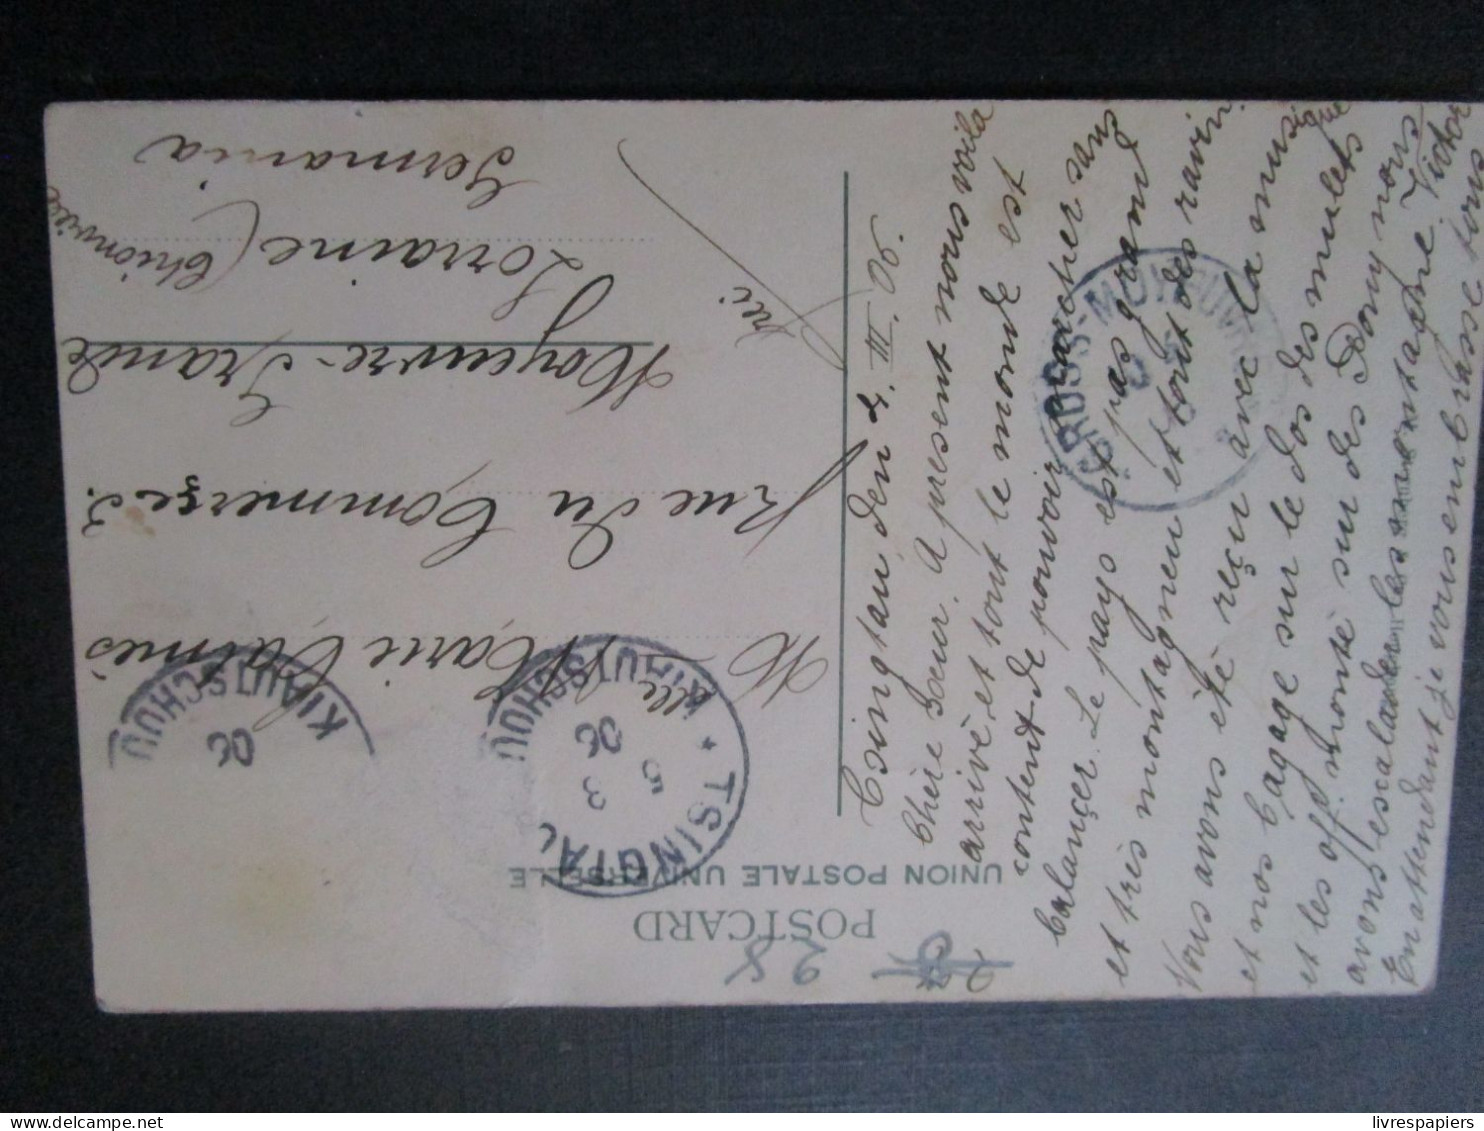 POSTCARD
UNION POSTALE UNIVERSELLE
28
TSINGTAU
KIAUTSCHOU
5 3
06
KIAUTSCHOU
06
Mlle Marie Calmes
Rue du Commerse 3.
Moyeuvre-Grande
Lorraine (Thionville
Germania
Tsingtau den 4. III. 06.
Chère Soeur. A present nous voila
arrivè et tout le monde est
content de pouvoir marcher sans
balançer. Le pays est pas grand
et très montagneu et tout des ravin
Nous avons été reçu avec la musique
et nos bagage sur le dos des mulets
et les off. monté sur des Pony nous
avons escalader les montagne. Victor
En attendant je vous embrasse tous
GROSS-MOYEUVRE
livrespapiers